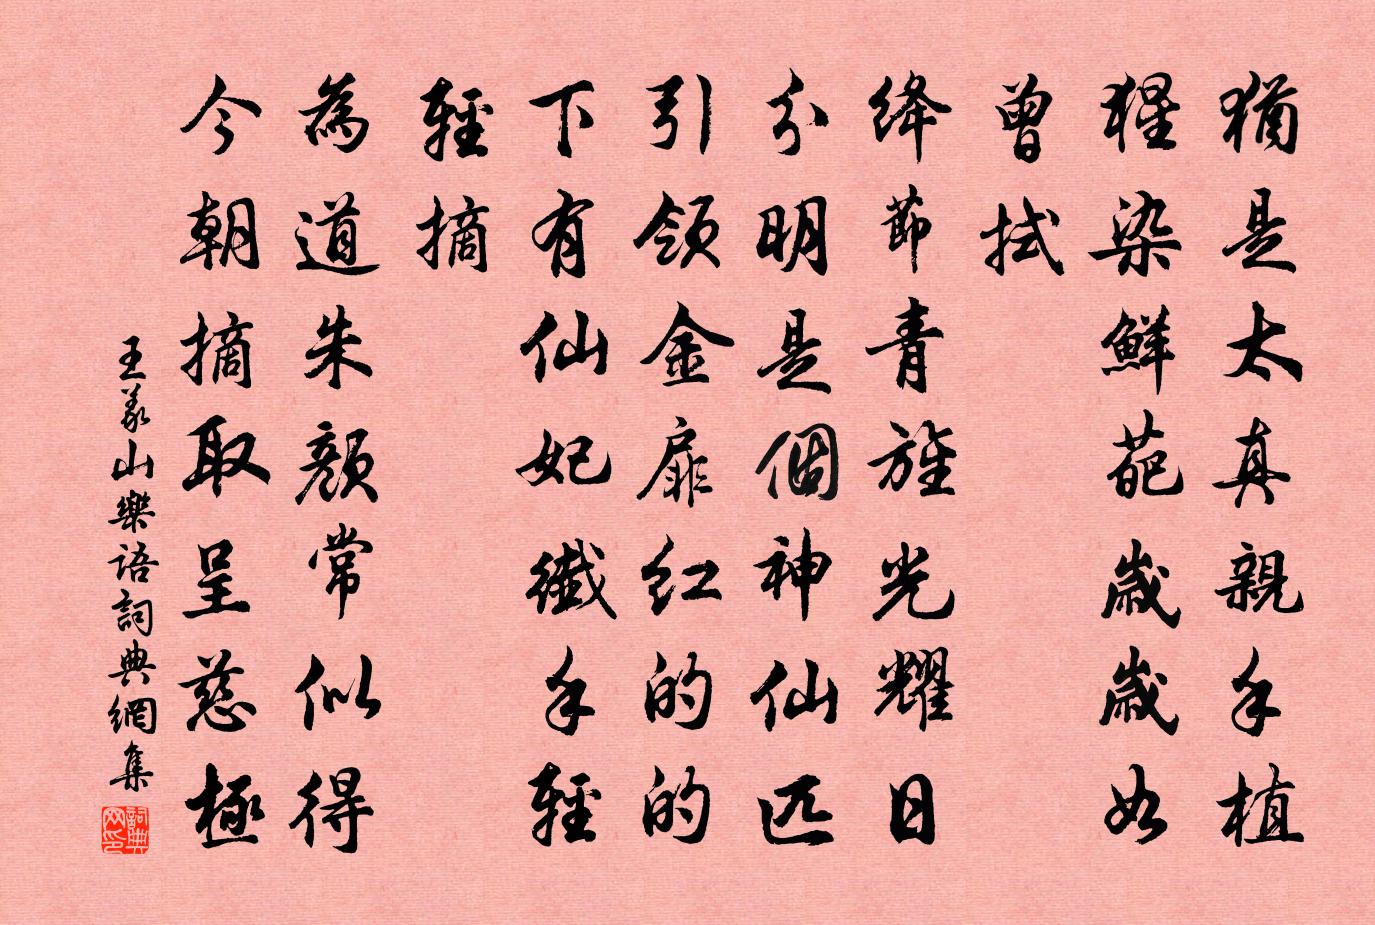 猶是太真親手植
猩染鮮葩歲歲如
曾拭
绛節青旌光耀日
分明是個神仙匹
引領金扉红的的
下有仙妃纖手輕
輕摘
為道朱顏常似得
今朝摘取呈慈極
王義山樂语詞典網集
詞典网印